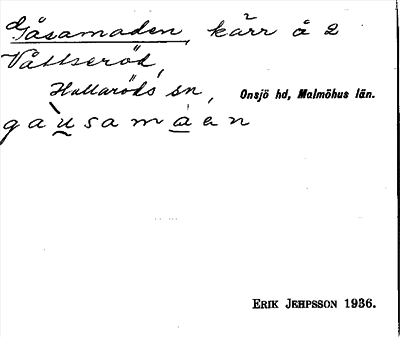 Gåsamaden, kärr å 2
Vättseröd,
Hallaröds sn, Onsjö hd, Malmöhus län.
gàu̲samá̲en
ERIK JEHPSSON 1936.